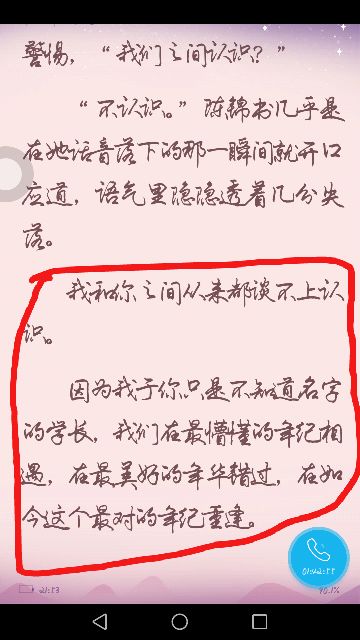 警惕，“我们之间认识？”
“不认识。”陈锦书几乎是
在她话音落下的那一瞬间就开口
应道，语气里隐隐透着几分失
落。
我和你之间从来都谈不上认
识。
因为我于你只是不知道名字
的学长，我们在最懵懂的年纪相
遇，在最美好的年华错过，在如
今这个最对的年纪重逢。
01:42:55
21:53
70.1%